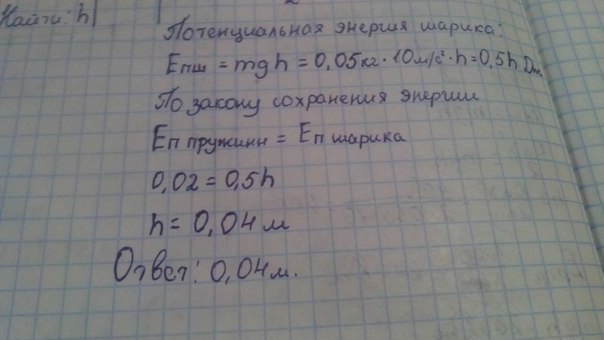 Найти: h
Потенциальная энергия шарика:
Eпш = mgh = 0,05кг · 10м/с² · h = 0,5h Дж
По закону сохранения энергии
Eп пружинн = Eп шарика
0,02 = 0,5h
h = 0,04 м
Ответ: 0,04м.